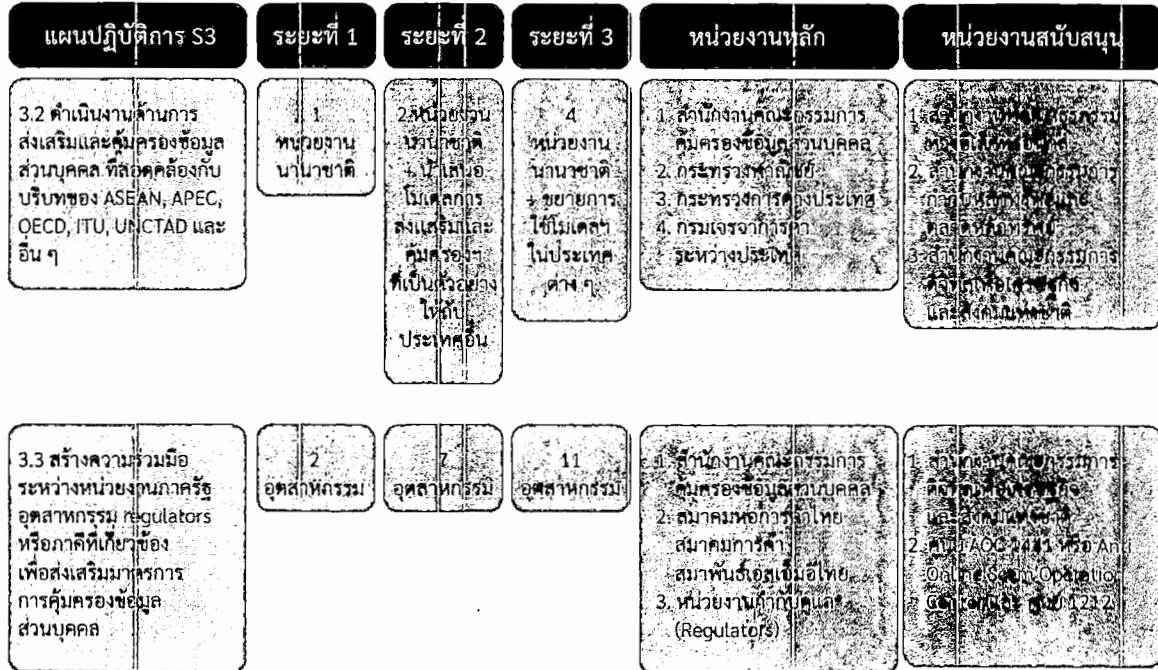 แผนปฏิบัติการ S3
ระยะที่ 1
ระยะที่ 2
ระยะที่ 3
หน่วยงานหลัก
หน่วยงานสนับสนุน
3.2 ดำเนินงานด้านการ
ส่งเสริมและคุ้มครองข้อมูล
ส่วนบุคคล ที่สอดคล้องกับ
บริบทของ ASEAN, APEC,
OECD, ITU, UNCTAD และ
อื่น ๆ
1
หน่วยงาน
นานาชาติ
2 หน่วยงาน
นานาชาติ
+ นำเสนอ
โมเดลการ
ส่งเสริมและ
คุ้มครองฯ
ที่เป็นตัวอย่าง
ให้กับ
ประเทศอื่น
4
หน่วยงาน
นานาชาติ
+ ขยายการ
ใช้โมเดลฯ
ในประเทศ
ต่าง ๆ
1. สำนักงานคณะกรรมการ
คุ้มครองข้อมูลส่วนบุคคล
2. กระทรวงพาณิชย์
3. กระทรวงการต่างประเทศ
4. กรมเจรจาการค้า
ระหว่างประเทศ
1. สำนักงานพัฒนาธุรกรรม
ทางอิเล็กทรอนิกส์
2. สำนักงานคณะกรรมการ
กำกับหลักทรัพย์และ
ตลาดหลักทรัพย์
3. สำนักงานคณะกรรมการ
ดิจิทัลเพื่อเศรษฐกิจ
และสังคมแห่งชาติ
3.3 สร้างความร่วมมือ
ระหว่างหน่วยงานภาครัฐ
อุตสาหกรรม regulators
หรือภาคีที่เกี่ยวข้อง
เพื่อส่งเสริมมาตรการ
การคุ้มครองข้อมูล
ส่วนบุคคล
2
อุตสาหกรรม
7
อุตสาหกรรม
11
อุตสาหกรรม
1. สำนักงานคณะกรรมการ
คุ้มครองข้อมูลส่วนบุคคล
2. สมาคมหอการค้าไทย
สมาคมการค้า
สมาพันธ์เอสเอ็มอีไทย
3. หน่วยงานกำกับดูแล
(Regulators)
1. สำนักงานคณะกรรมการ
ดิจิทัลเพื่อเศรษฐกิจ
และสังคมแห่งชาติ
2. ศูนย์ AOC 1441 หรือ Anti
Online Scam Operation
Center และ ศูนย์ 1212